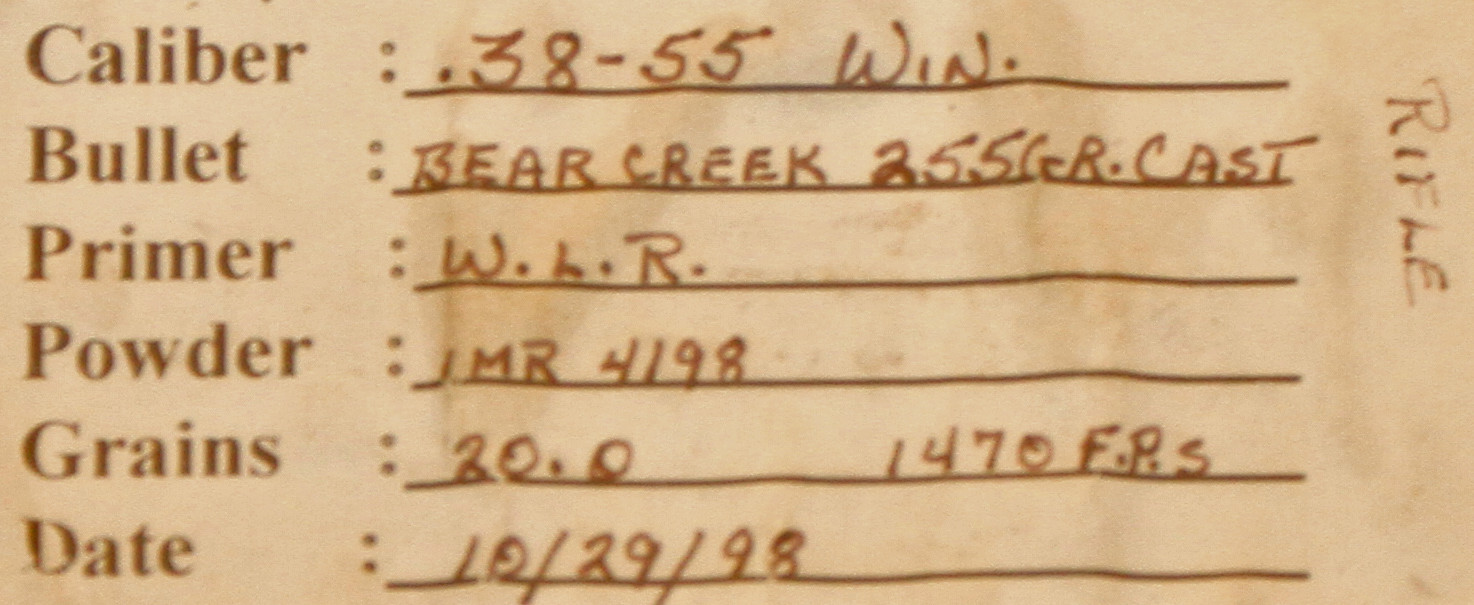 Caliber : .38-55 WIN.
Bullet : BEAR CREEK 255GR. CAST
Primer : W.L.R.
Powder : IMR 4198
Grains : 20.0 1470 F.P.S
Date : 10/29/98
RIFLE